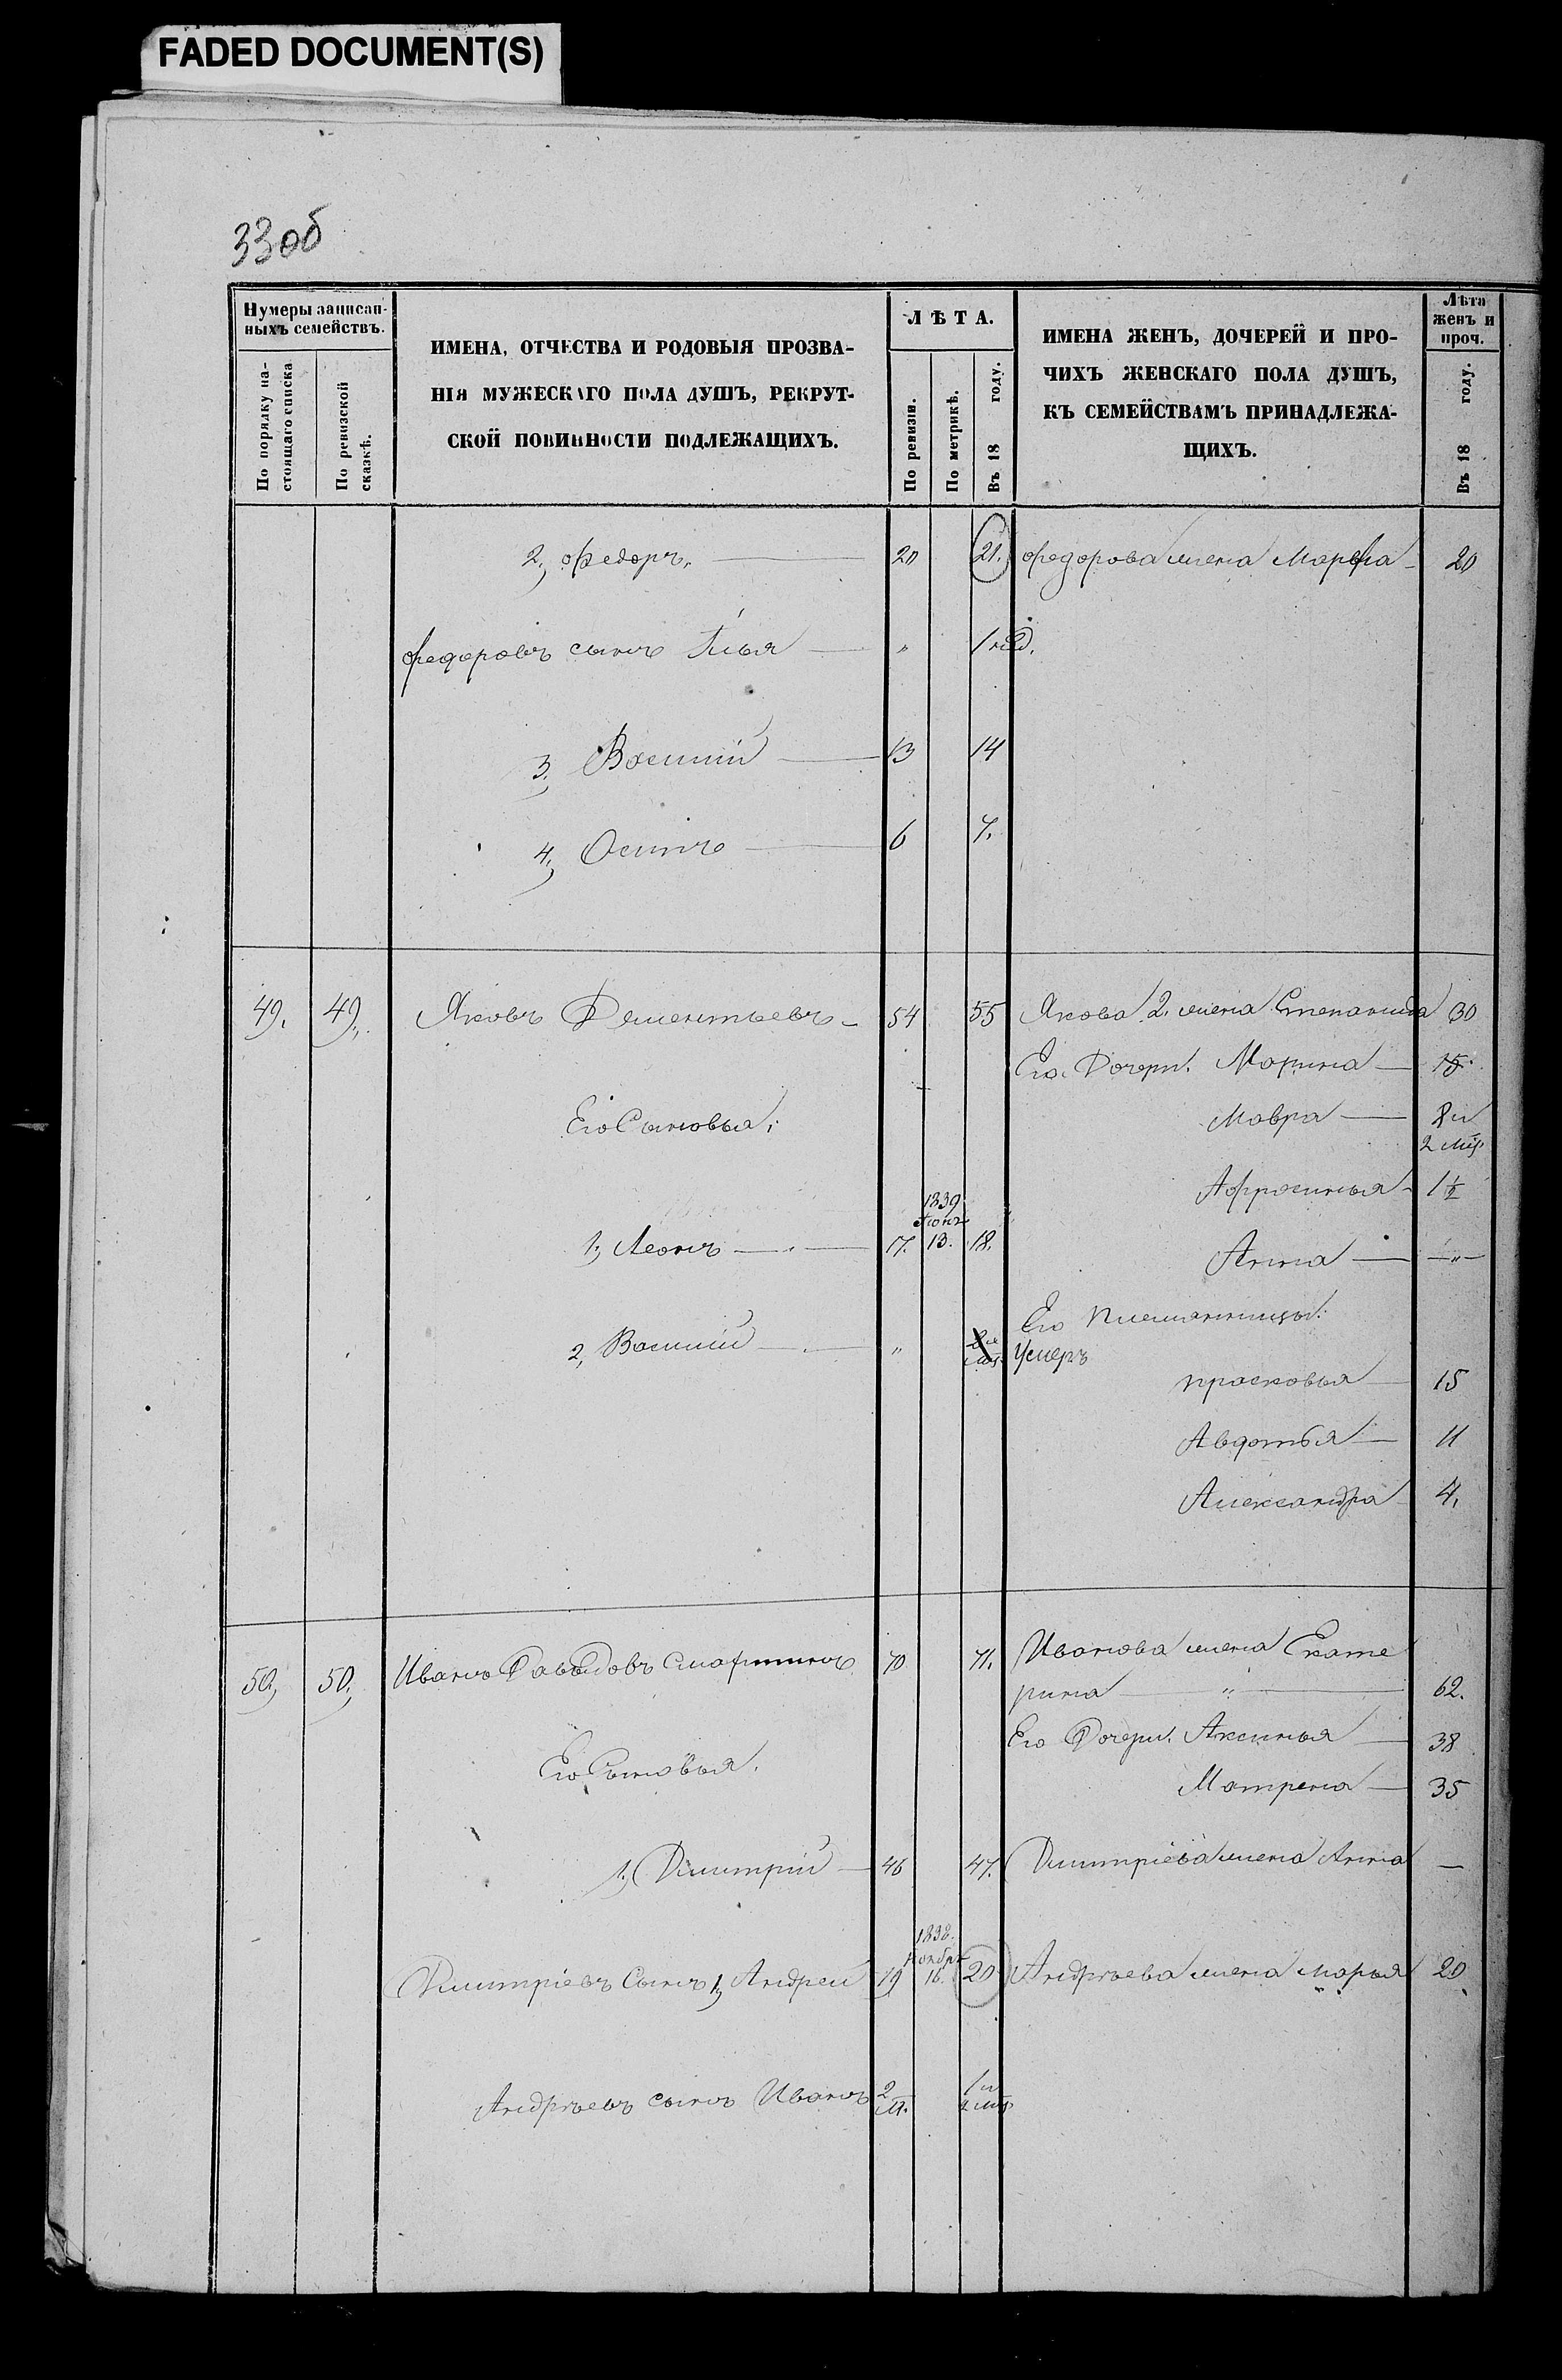 FADED DOCUMENT(S)
33об
Нумеры записан-
ныхъ семействъ.
По порядку на-
стоящаго списка
По ревизской
сказкѣ.
ИМЕНА, ОТЧЕСТВА И РОДОВЫЯ ПРОЗВА-
НІЯ МУЖЕСКАГО ПОЛА ДУШЪ, РЕКРУТ-
СКОЙ ПОВИННОСТИ ПОДЛЕЖАЩИХЪ.
ЛѢТА.
По ревизіи.
По метрикѣ.
Въ 18 году.
ИМЕНА ЖЕНЪ, ДОЧЕРЕЙ И ПРО-
ЧИХЪ ЖЕНСКАГО ПОЛА ДУШЪ,
КЪ СЕМЕЙСТВАМЪ ПРИНАДЛЕЖА-
ЩИХЪ.
Лѣта
женъ и
проч.
Въ 18 году.
2, Федоръ, 20 21. Федорова жена Марфа 20
Федоровъ сынъ Илья " 1 нед.
3, Василій 13 14
4, Осипъ 6 7.
49. 49. Яковъ Дементьевъ 54 55 Якова 2. жена Степанида 30
Его Дочери: Марина 15
Его Сыновья: Мавра 8 и
2 мѣс.
Афросинья 1½
1839
Іюня
1, Леонъ 17. 13. 18. Анна "
Его племянницы:
2, Василій " Умеръ
Прасковья 15
Авдотья 11
Александра 4.
50, 50, Иванъ Давыдовъ 70 71. Иванова жена Екате
рина " 62.
Его Дочери: Аксинья 38
Его Сыновья. Матрена 35
1, Дмитрій 46 47. Дмитріева жена Анна —
1838.
Дмитріевъ Сынъ 1, Андрей 19 16. 20 Андрѣева жена Марья 20
Андрѣевъ сынъ Иванъ 2
м. 1 и
2 мѣс.